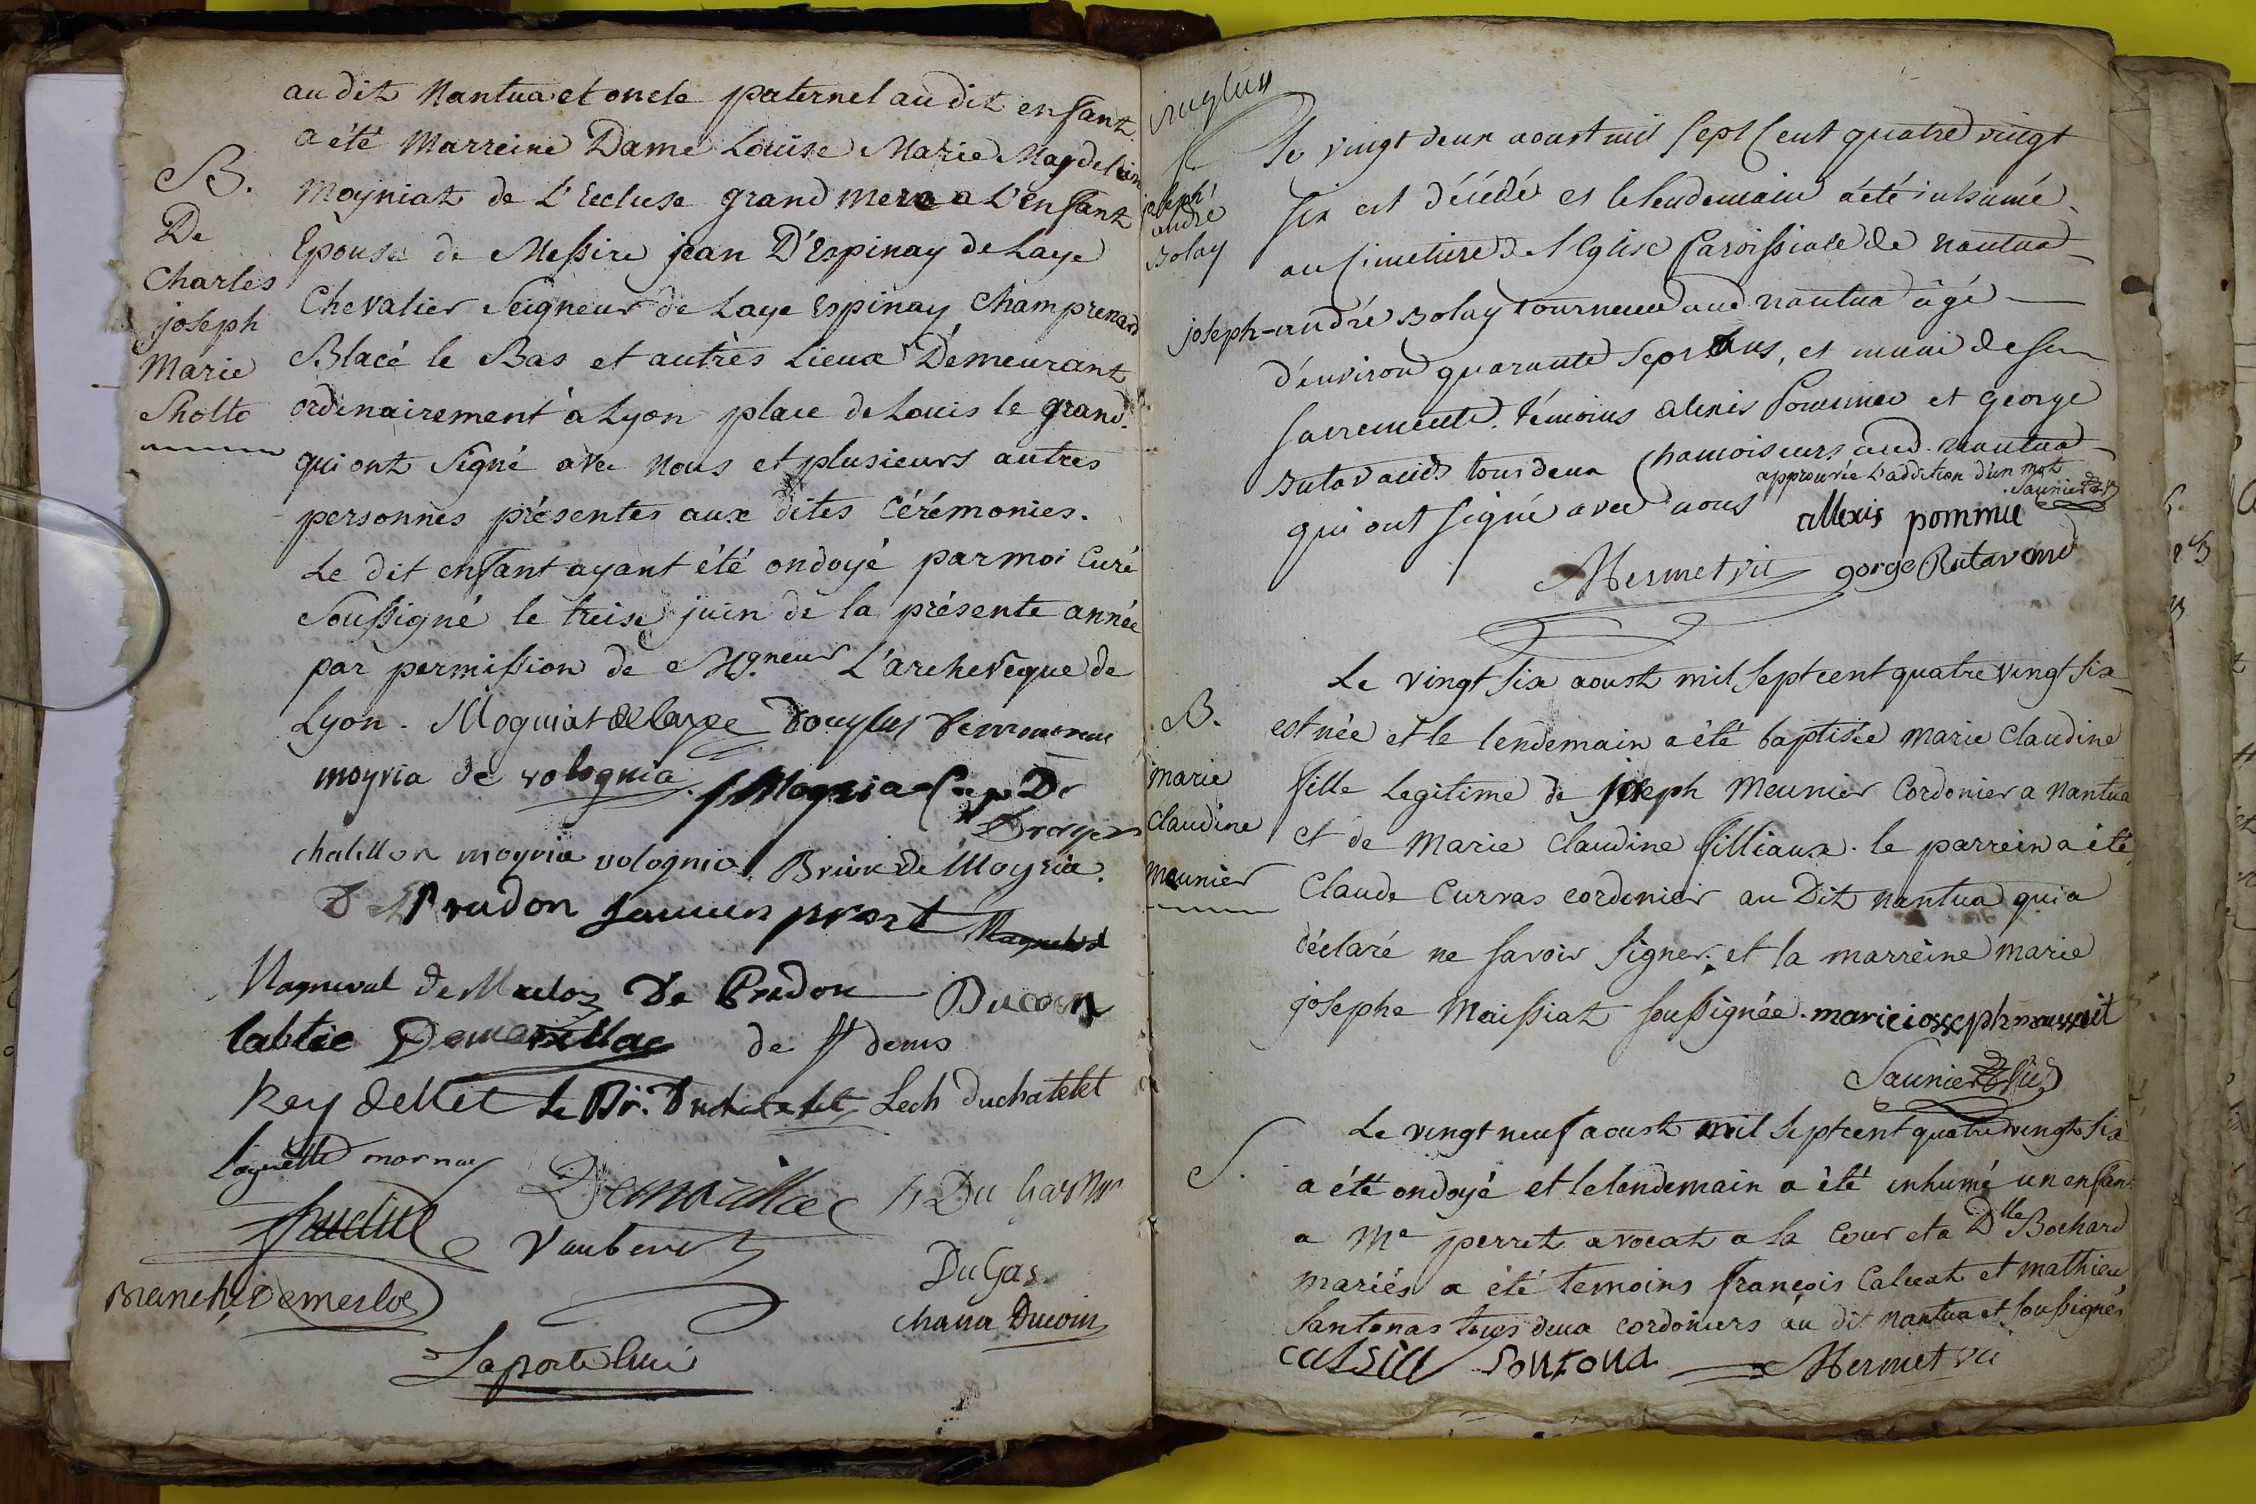 audit Nantua et oncle paternel audit enfant
a été Marreine Dame Louise Marie Magdelein
B. De Charles joseph Marie Sholto
Moyniat de L'Ecluse grand mere a L'enfant
Epouse de Messire jean D'Espinay de Laye
Chevalier Seigneur de Laye Espinay Champrenard
Blacé le Bas et autrès Lieux Démeurant
ordinairement à Lyon place de Louis le grand.
qui ont Signé avec Nous et plusieurs autres
personnes présentes aux dites Cérémonies.
Le dit enfant ayant été ondoyé par moi Curé
Soussigné le treise juin de la présente année
par permission de Mgneur L'archevêque de
Lyon. Moguiat de laye Douglas
moyria de volognia
chatillon moyria volognia Brion de Moyria.
Prudon prost
De Prudon Ducoin
labtie Demarillac de St denis
Rey Le Br. Duchatelet Lech Duchatelet
mornay Demarillac
Vaubert
DuGas
Branche Demerloz chana Ducoin
Laporte
joseph andré Bolay
Le vingt deux aoust mil sept Cent quatre vingt
six est décédé et le lendemain a été inhumé
au Cimetière de l'Eglise Paroissiale de Nantua
joseph-andré Bolay tourneur aud nantua âgé
d'environ quarante sept ans, et muni de ses
sacrements. témoins alexis Pommier et george
Rutavand tous deux Chamoiseurs aud. nantua
approuvée L'addition d'un mot Saunier
qui ont signé avec nous allexis pommie
Mermet vic gorge Rutavand
Le vingt six aoust mil sept cent quatre vingt six
B. marie claudine meunier
est née et le lendemain a été baptisée marie Claudine
fille Legitime de joseph Meunier Cordonier a Nantua
et de Marie Claudine filliaux. le parrein a été
Claude Curvas cordonier au Dit Nantua qui a
déclaré ne savoir signer. et la marreine Marie
josephe Maissiat soussignée. marie iosseph
Saunier vic
S.
Le vingt neuf aoust mil sept cent quatre vingt six
a été ondoyé et le lendemain a été inhumé un enfan
a Me perret avocat a la Cour et a Dlle Bochard
mariés a été temoins françois Caluat et mathieu
Santonas tous deux cordoniers au dit Nantua et soussignés
Mermet vic